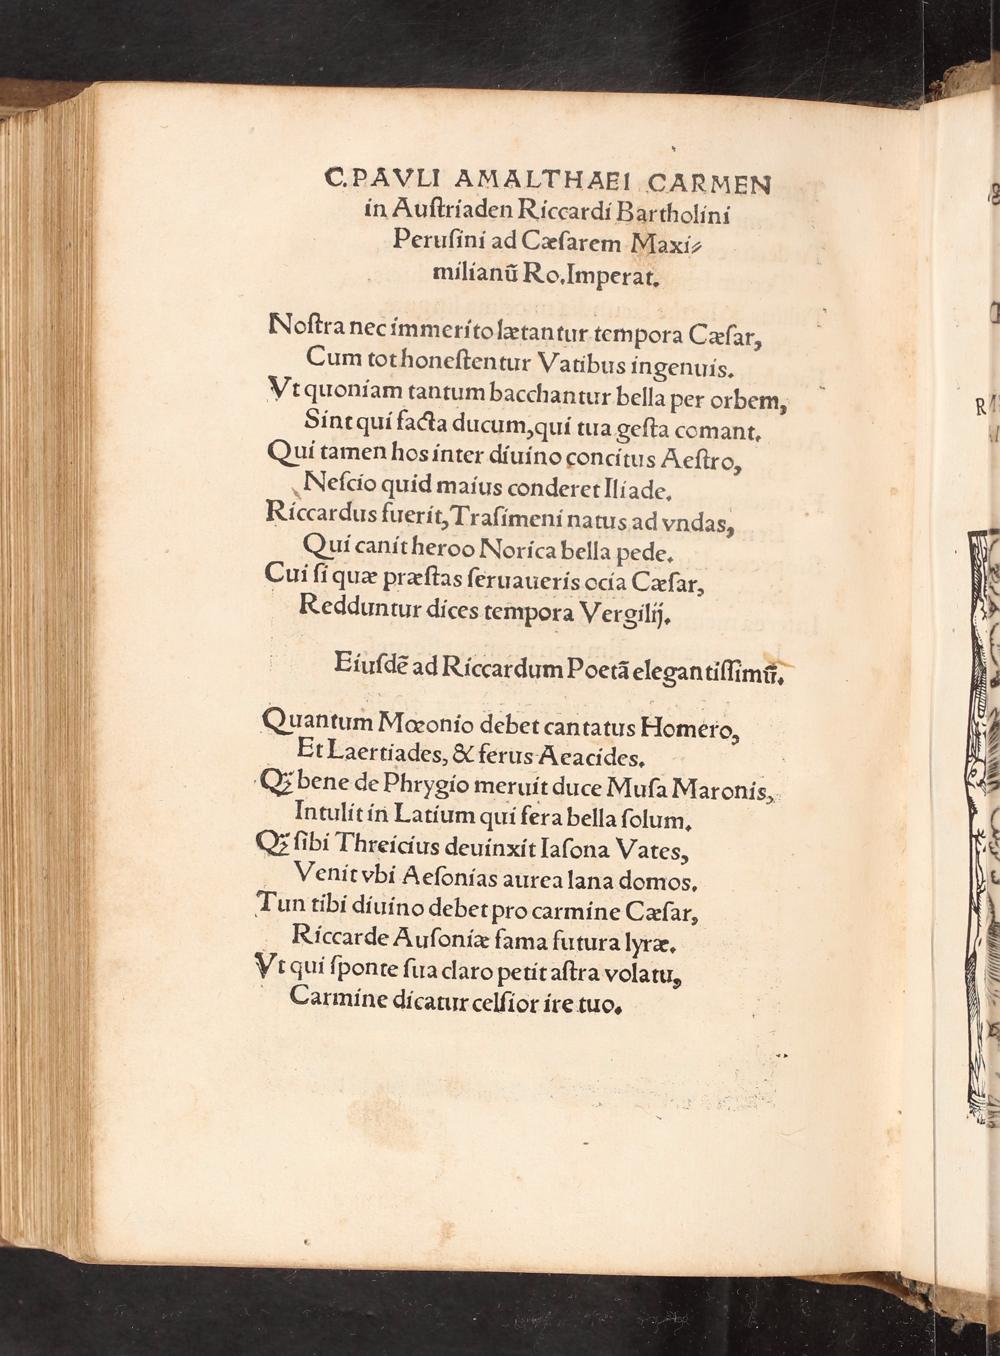 C.PAVLI AMALTHAEI CARMEN
in Auſtriaden Riccardi Bartholini
Peruſini ad Cæſarem Maxi⸗
milianū Ro.Imperat.
Noſtra nec immerito lætantur tempora Cæſar,
Cum tot honeſtentur Vatibus ingenuis.
Vt quoniam tantum bacchantur bella per orbem,
Sint qui facta ducum,qui tua geſta comant.
Qui tamen hos inter diuino concitus Aeſtro,
Neſcio quid maius conderet Iliade.
Riccardus fuerit,Traſimeni natus ad vndas,
Qui canit heroo Norica bella pede.
Cui ſi quæ præſtas ſeruaueris ocia Cæſar,
Redduntur dices tempora Vergilij.
Eiuſdē ad Riccardum Poetā elegantiſſimū.
Quantum Mœonio debet cantatus Homero,
Et Laertiades, & ferus Aeacides.
Qꝫ bene de Phrygio meruit duce Muſa Maronis,
Intulit in Latium qui fera bella ſolum.
Qꝫ ſibi Threicius deuinxit Iaſona Vates,
Venit vbi Aeſonias aurea lana domos.
Tun tibi diuino debet pro carmine Cæſar,
Riccarde Auſoniæ fama futura lyræ.
Vt qui ſponte ſua claro petit aſtra volatu,
Carmine dicatur celſior ire tuo.